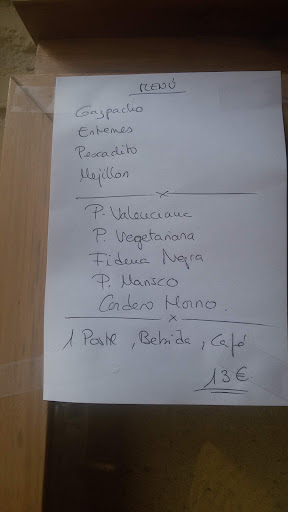 MENÚ
Gazpacho
Entremes
Pescadito
Mejillon
P. Valenciana
P. Vegetariana
Fideua Negra
P. Marisco
Cordero Horno.
1 Postre, Bebida, Café
13€